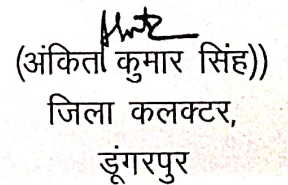 (अंकित कुमार सिंह))
जिला कलक्टर,
डूंगरपुर